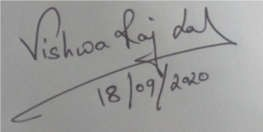 Vishwa Raj Lal
18/09/2020